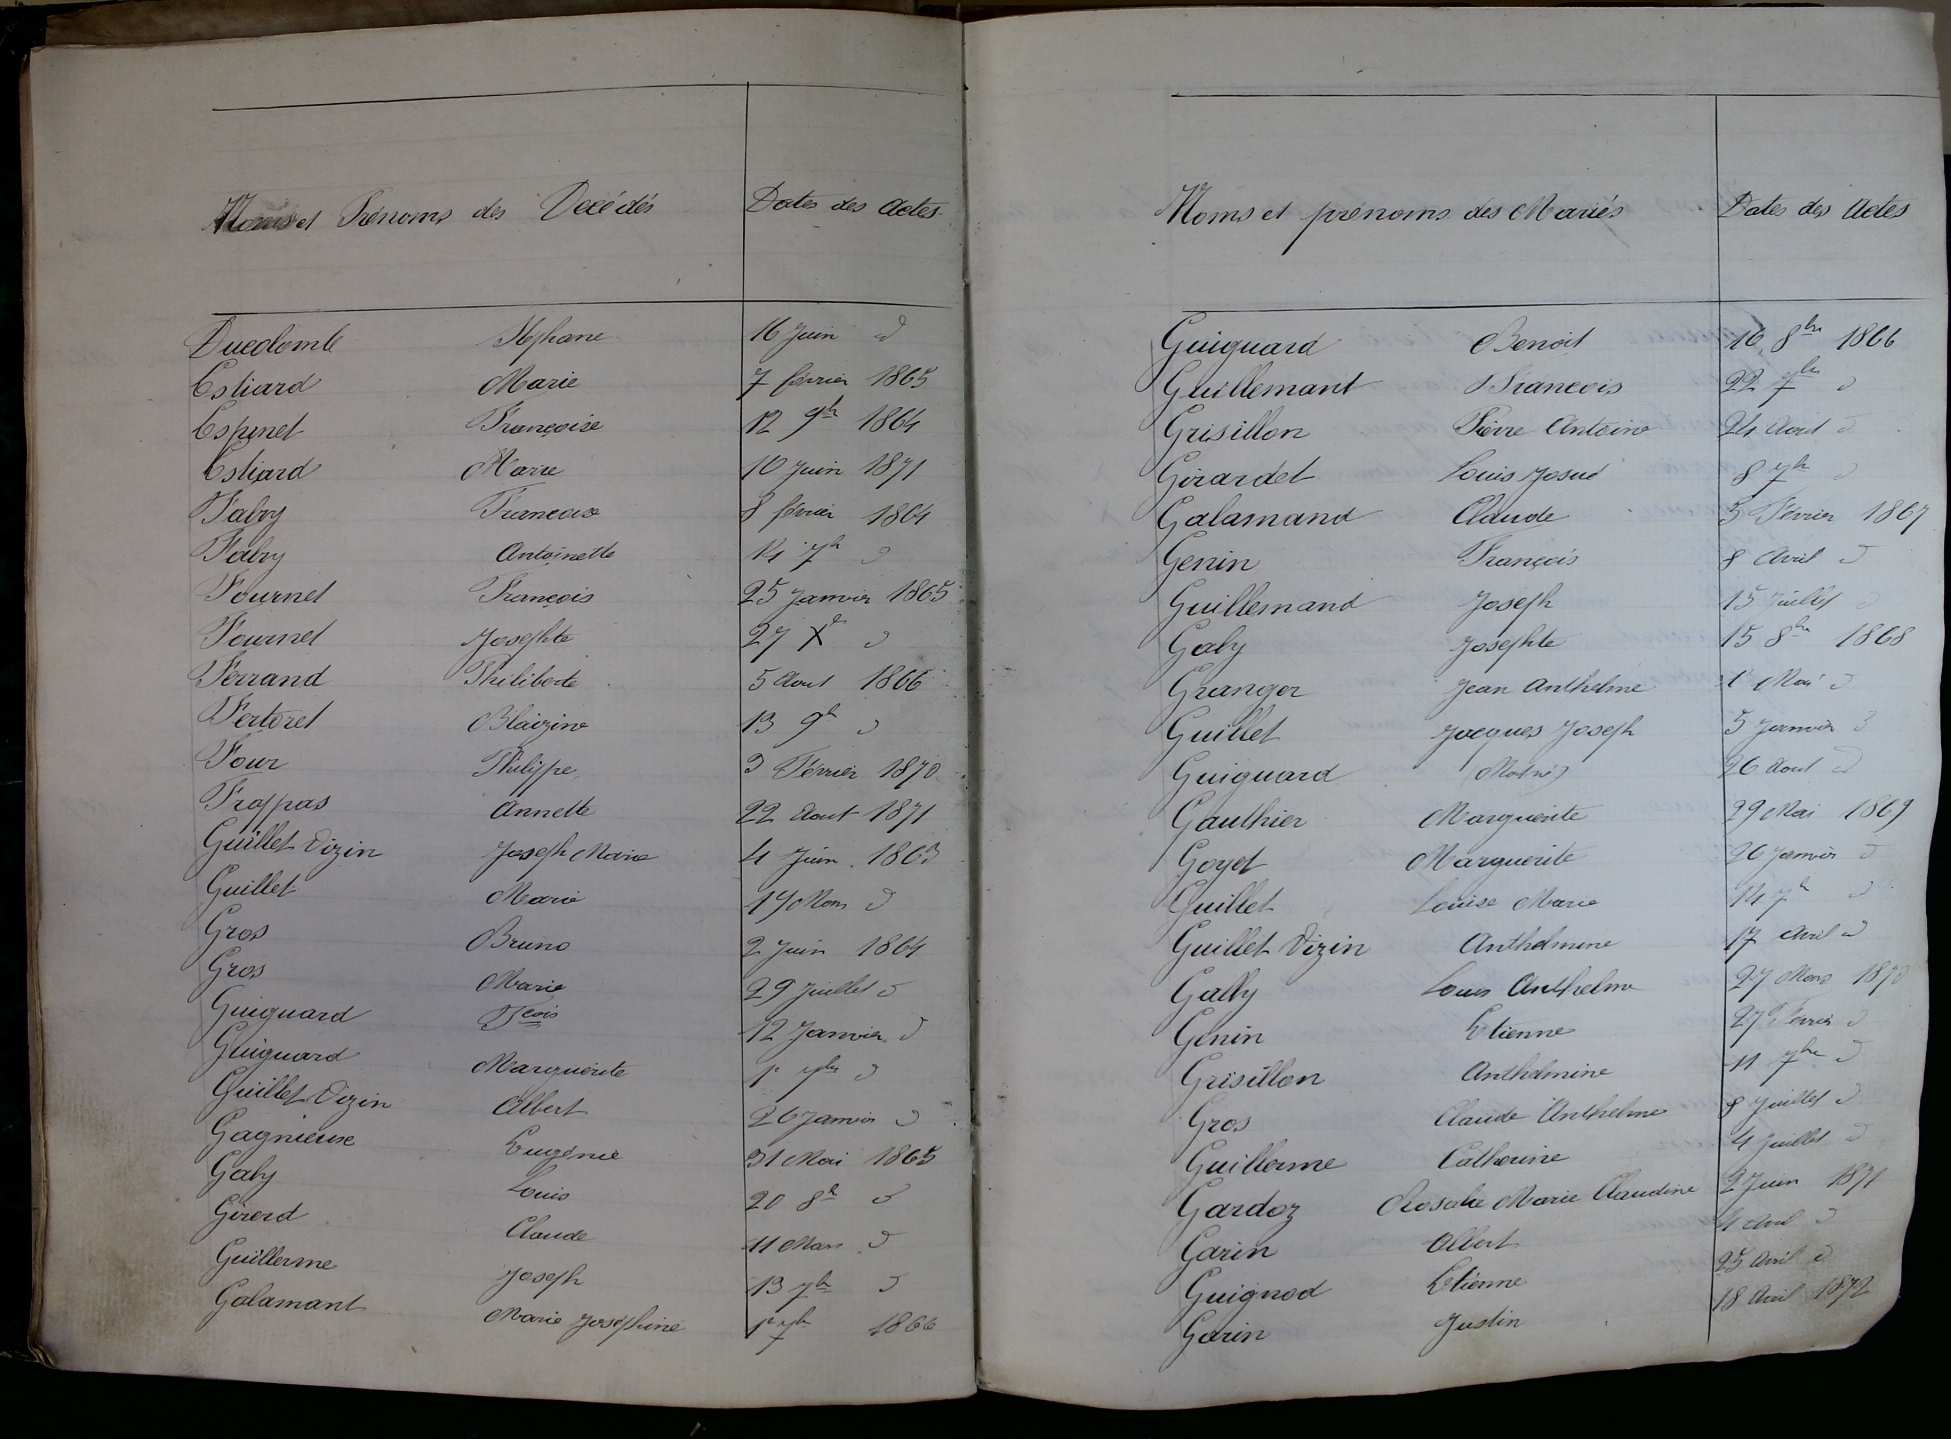 Noms et Prénoms des Décédés Dates des Actes
Ducolomb Stéphane 16 Juin d
Estiard Marie 7 février 1865
Espinet Françoise 12 9b 1864
Estiard Marie 10 Juin 1871
Fabry Françoise 8 février 1864
Fabry Antoinette 14 7b d
Fournet François 25 Janvier 1865
Fournet Josephte 27 Xb d
Ferrand Philiberte 5 Aout 1866
Fertoret Blaizine 13 9b d
Four Philippe 3 Février 1870
Frappas Annette 22 Aout 1871
Guillet Dizin Joseph Marie 4 Juin 1863
Guillet Marie 19 Mars d
Gros Bruno 2 Juin 1864
Gros Marie 29 Juillet d
Guiguard Fcois 12 Janvier d
Guiguard Marguerite 1r d
Guillet Dizin Albert 26 Janvier d
Gagnieux Eugénie 31 Mai 1865
Gaby Louis 20 8b d
Girerd Claude 11 Mars d
Guillerme Joseph 13 7bre d
Galamant Marie Joséphine 1r 7b 1866
Noms et prénoms des Mariés Dates des Actes
Guiguard Benoit 16 8bre 1866
Guillemant Francois 22 7bre d
Grisillon Pierre Antoine 24 Aout d
Girardet Louis Josué 8 7b d
Galamand Claude 3 Février 1867
Genin François 8 Avril d
Guillemand Joseph 15 Juillet d
Gaby Josephte 15 8bre 1868
Granger Jean Anthelme 1r Mai d
Guillet Jacques Joseph 5 Janvier d
Guiguard 26 Aout d
Gauthier Marguerite 29 Mai 1869
Goyet Marguerite 26 Janvier d
Guillet Louise Marie 14 7b d
Guillet Dizin Anthelmine 17 Avril d
Gally Louis Anthelme 27 Mars 1870
Genin Etienne 27 Fevrier d
Grisillon Anthelmine 11 7bre d
Gros Claude Anthelme 8 Juillet d
Guillerme Catherine 4 Juillet d
Gardoz Rosalie Marie Claudine 2 Juin 1871
Garin Albert 4 Avril d
Guignod Etienne 25 Avril d
Garin Justin 18 Avril 1872